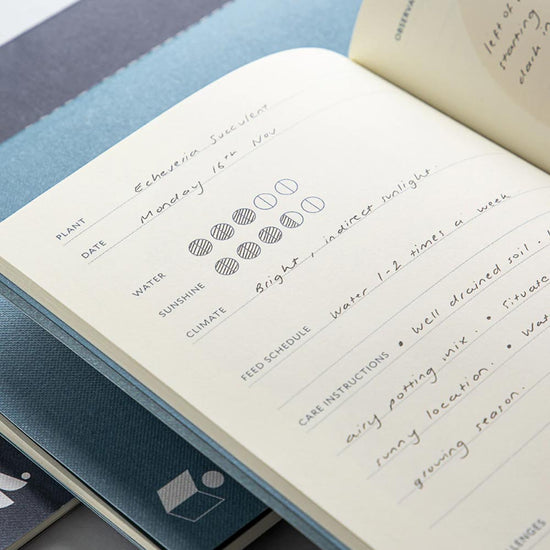 OBSERVA
left of
starting
dark in
PLANT Echeveria Succulent
DATE Monday 16th Nov
WATER
SUNSHINE
CLIMATE Bright, indirect sunlight.
FEED SCHEDULE Water 1-2 times a week
CARE INSTRUCTIONS • Well drained soil -
airy potting mix. • Situate
sunny location. • Wat
growing season.
LENGES